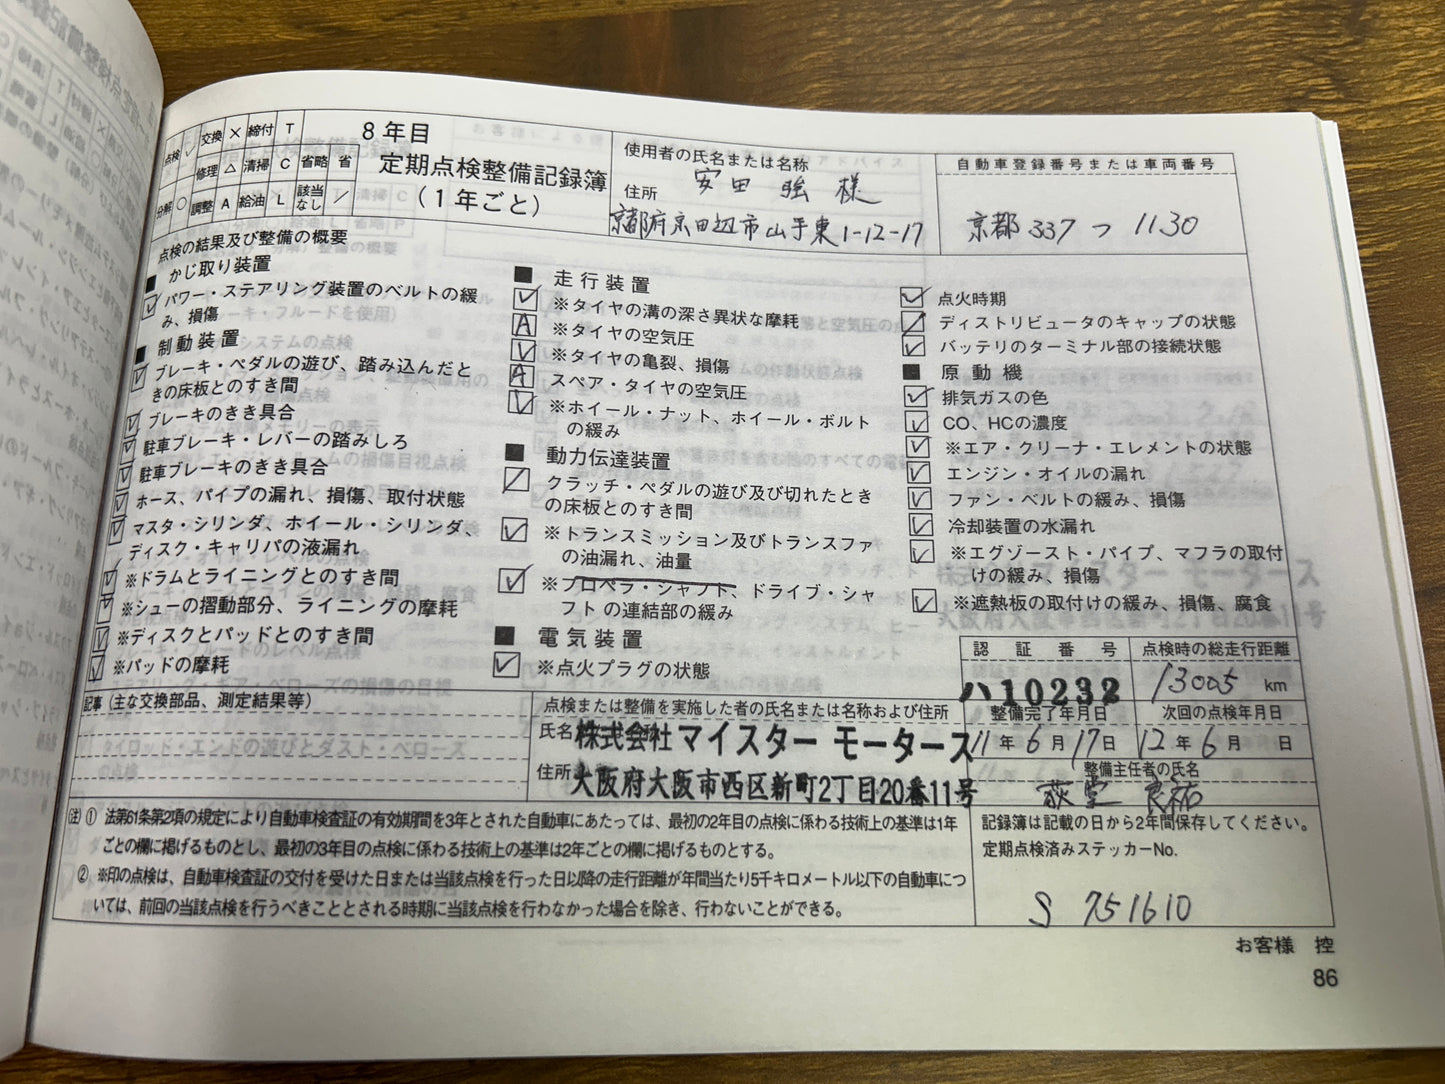 点検 ✓ 交換 × 締付 T
修理 △ 清掃 C 省略 省
分解 ○ 調整 A 給油 L 該当なし ／
8年目
定期点検整備記録簿
（1年ごと）
使用者の氏名または名称
安田 強 様
住所
京都府京田辺市山手東1-12-17
自動車登録番号または車両番号
京都 337 つ 1130
点検の結果及び整備の概要
■ かじ取り装置
パワー・ステアリング装置のベルトの緩
み、損傷
■ 制動装置
ブレーキ・ペダルの遊び、踏み込んだと
きの床板とのすき間
ブレーキのきき具合
駐車ブレーキ・レバーの踏みしろ
駐車ブレーキのきき具合
ホース、パイプの漏れ、損傷、取付状態
マスタ・シリンダ、ホイール・シリンダ、
ディスク・キャリパの液漏れ
※ドラムとライニングとのすき間
※シューの摺動部分、ライニングの摩耗
※ディスクとパッドとのすき間
※パッドの摩耗
■ 走行装置
※タイヤの溝の深さ異状な摩耗
A ※タイヤの空気圧
※タイヤの亀裂、損傷
A スペア・タイヤの空気圧
※ホイール・ナット、ホイール・ボルト
の緩み
■ 動力伝達装置
クラッチ・ペダルの遊び及び切れたとき
の床板とのすき間
※トランスミッション及びトランスファ
の油漏れ、油量
※プロペラ・シャフト、ドライブ・シャ
フトの連結部の緩み
■ 電気装置
※点火プラグの状態
点火時期
ディストリビュータのキャップの状態
バッテリのターミナル部の接続状態
■ 原動機
排気ガスの色
CO、HCの濃度
※エア・クリーナ・エレメントの状態
エンジン・オイルの漏れ
ファン・ベルトの緩み、損傷
冷却装置の水漏れ
※エグゾースト・パイプ、マフラの取付
けの緩み、損傷
※遮熱板の取付けの緩み、損傷、腐食
記事（主な交換部品、測定結果等）
点検または整備を実施した者の氏名または名称および住所
氏名 株式会社 マイスター モータース
住所 大阪府大阪市西区新町2丁目20番11号
認証番号
ハ10232
点検時の総走行距離
13005 km
整備完了年月日
11年 6月 17日
次回の点検年月日
12年 6月 日
整備主任者の氏名
荻堂 良祐
記録簿は記載の日から2年間保存してください。
定期点検済みステッカーNo.
S 751610
注) ① 法第61条第2項の規定により自動車検査証の有効期間を3年とされた自動車にあたっては、最初の2年目の点検に係わる技術上の基準は1年
ごとの欄に掲げるものとし、最初の3年目の点検に係わる技術上の基準は2年ごとの欄に掲げるものとする。
② ※印の点検は、自動車検査証の交付を受けた日または当該点検を行った日以降の走行距離が年間当たり5千キロメートル以下の自動車につ
いては、前回の当該点検を行うべきこととされる時期に当該点検を行わなかった場合を除き、行わないことができる。
お客様 控
86